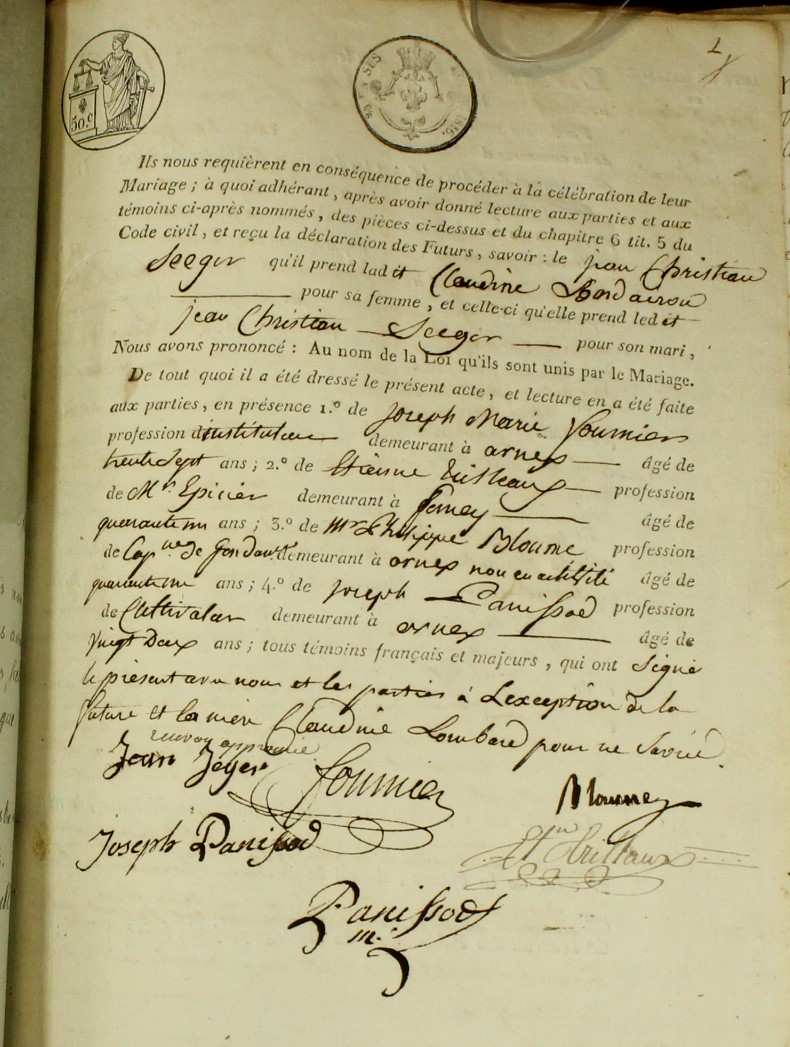 50 c.
1816.
Ils nous requièrent en conséquence de procéder à la célébration de leur
Mariage ; à quoi adhérant, après avoir donné lecture aux parties et aux
témoins ci-après nommés, des pièces ci-dessus et du chapitre 6 tit. 5 du
Code civil, et reçu la déclaration des Futurs, savoir : le jean Christian
Seeger qu'il prend ladet Claudine
pour sa femme, et celle-ci qu'elle prend ledet
jean Christian Seeger pour son mari,
Nous avons prononcé : Au nom de la Loi qu'ils sont unis par le Mariage.
De tout quoi il a été dressé le présent acte, et lecture en a été faite
aux parties, en présence 1.º de Joseph Marie Fournier
profession d'instituteur demeurant à ornex âgé de
trente Sept ans ; 2.º de Etienne profession
de M.d Epicier demeurant à ferney âgé de
quarante un ans ; 3.º de Mr Philippe Bloume profession
de Cap.ne de demeurant à ornex non en activité âgé de
quarante un ans ; 4.º de joseph Panissod profession
de Cultivateur demeurant à ornex âgé de
vingt Deux ans ; tous témoins français et majeurs, qui ont Signé
le présent avec nous et les parties à L'exception de la
future et la mère Claudine Lombard pour ne Savoir.
Jean
Fournier
Joseph Panissod
Panissod
m.